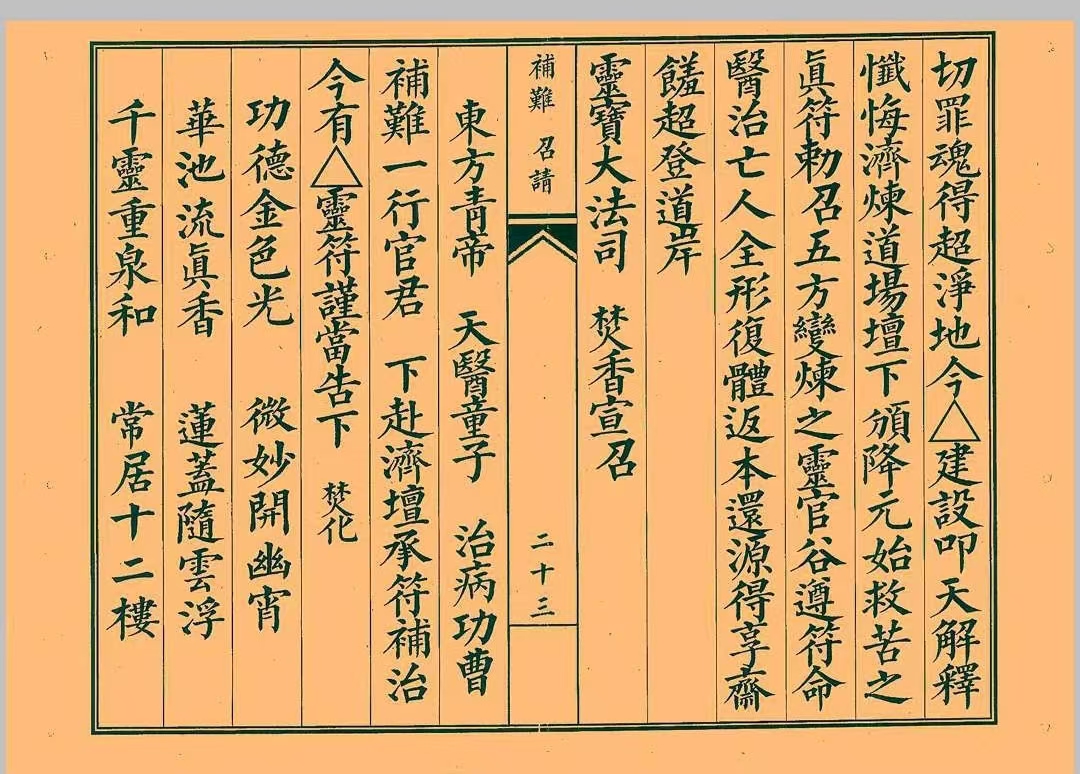 切罪魂得超淨地今△建設叩天解釋
懺悔濟煉道場壇下頒降元始救苦之
眞符勅召五方變煉之靈官谷遵符命
醫治亡人全形復體返本還源得享齋
饈超登道岸
靈寶大法司 焚香宣召
補難 召請 二十三
東方青帝 天醫童子 治病功曹
補難一行官君 下赴濟壇承符補治
今有△靈符謹當告下 焚化
功德金色光 微妙開幽宵
華池流眞香 蓮蓋隨雲浮
千靈重泉和 常居十二樓